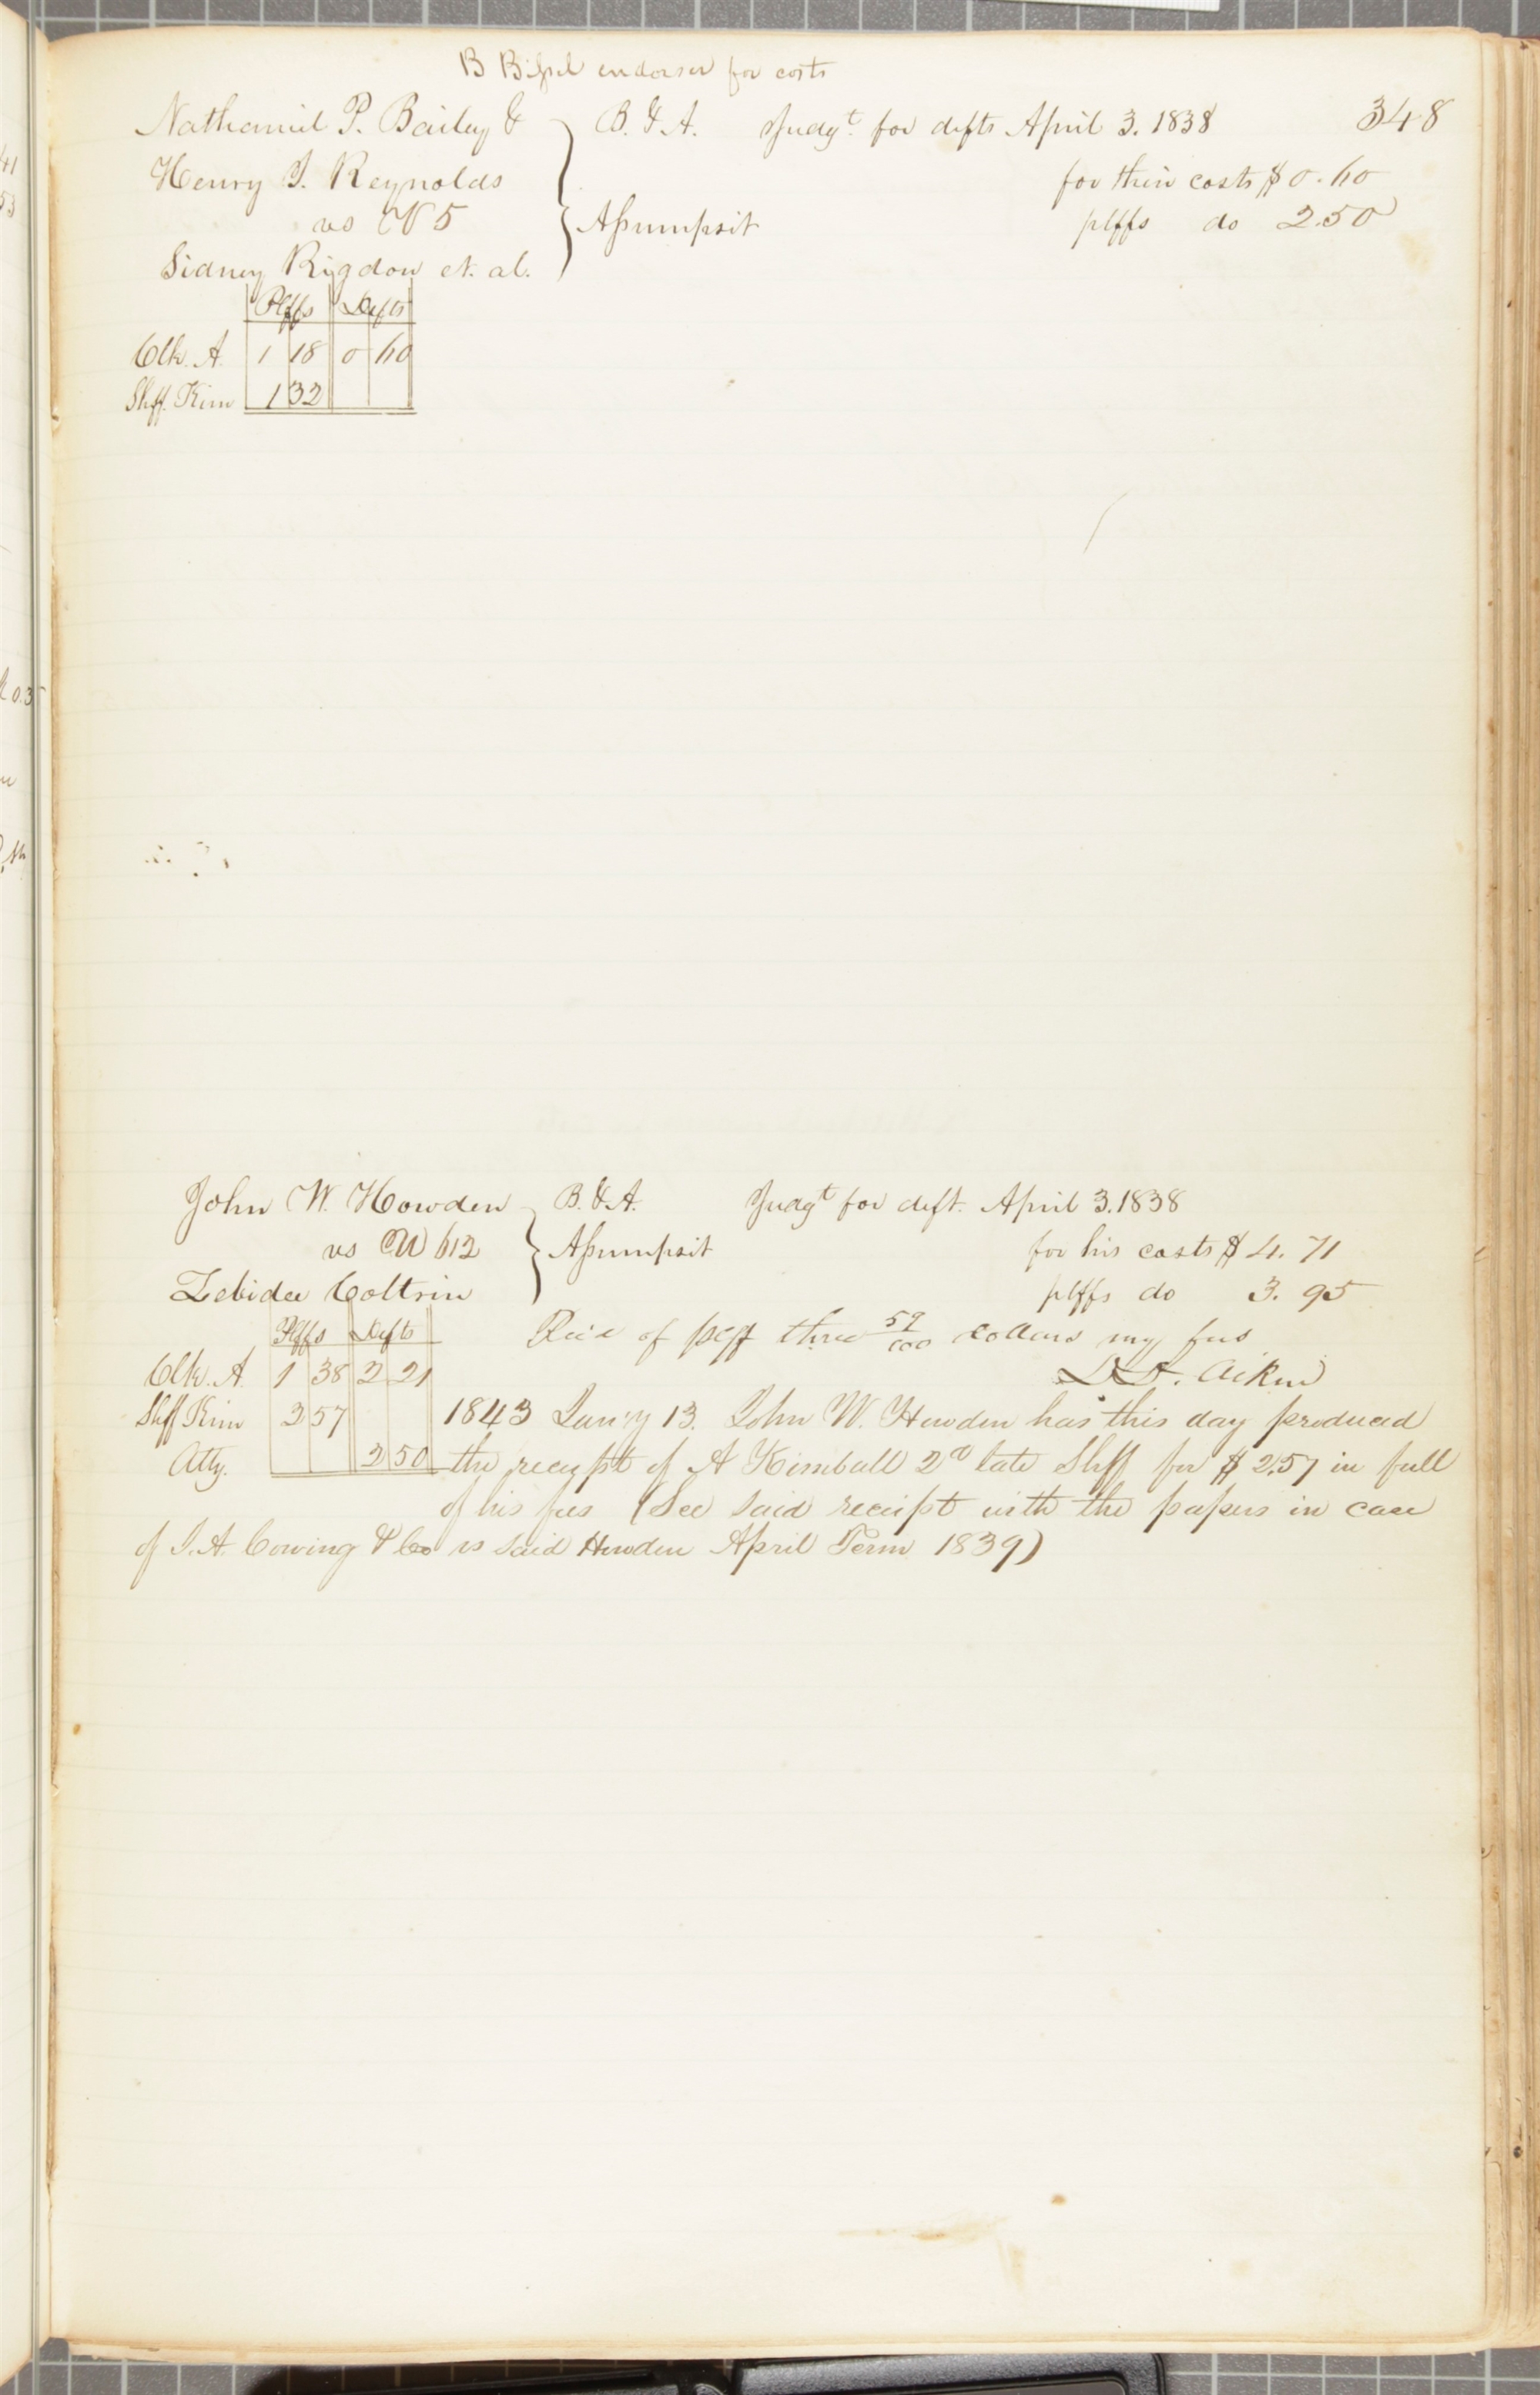 B Bissel endorser for costs
348
Nathaniel P. Bailey & B. & A. Judgt. for defts April 3. 1838
Henry I. Reynolds for their costs $0.60
vs N 5 Assumpsit plffs do 2.50
Sidney Rigdon et. al.
Plffs Defts
Clk. A. 1 18 0 60
Shff. Kim 1 32
John W. Howden B. & A. Judgt for deft. April 3. 1838
vs U 612 Assumpsit for his costs $4.71
Zebidee Coltrin plffs do 3.95
Plffs Defts Recd of plff three 59/100 dollars my fees
Clk. A. 1 38 2 21 D. D. Aiken
Shff Kim 2 57 1843 Jany 13. John W. Howden has this day produced
Atty. 2 50 the receipt of A Kimball 2d late Shff for $2.57 in full
of his fees (See said receipt with the papers in case
of I. A. Cowing & Co vs said Howden April Term 1839)